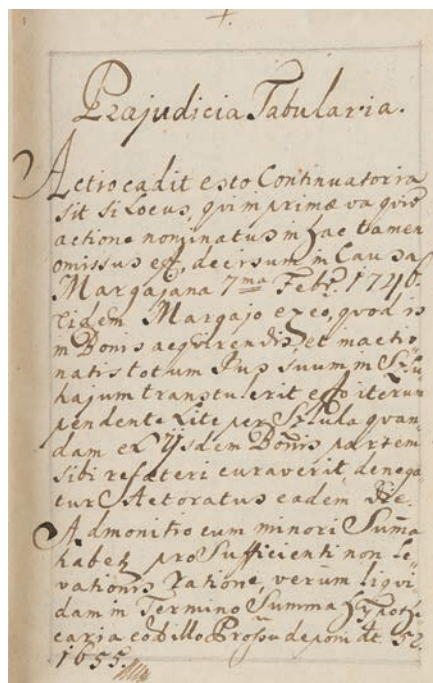 Præjudicia Tabularia.
Actio cadit esto Continuatoria
sit si Locus, qui in primæva quidē
actione nominatus in hac tamen
omissus est, decisum in Causa
Margajana 7ma Febr. 1740.
Eidem Margajo ex eo, quod is
in Bonis acquirendis, et in actio-
natis totum Jus suum in Szlu-
hajum transtulerit esto iterum
pendente Lite per Szluha quan-
dam ex ijsdem Bonis partem
sibi refateri curaverit, denega-
tur Actoratus eadem Die.
Admonitio cum minori Summa
habet pro Sufficienti non le-
vationis ratione, verum liqui-
dam in Termino Summa Hypothe-
caria eo dillo depom dt. 52.
1655.